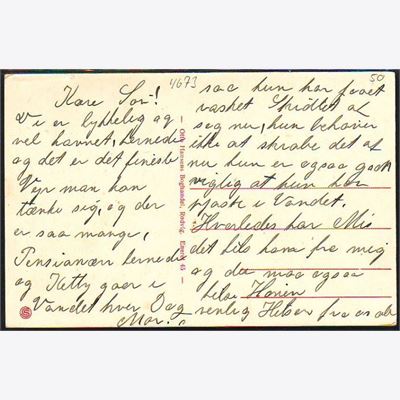 4673
50
Kære Sos!
Vi er lykkelig og
vel havnet, hernede
og det er det fineste
Vejr man kan
tænke sig, og der
er saa mange,
Pensionærer hernede
og Ketty gaar i
Vandet hver Dag
Mor.
— Otto Hansens Boghandel, Rødvig. Eneret 45 —
saa hun har faaet
vasket Skidtet af
seg nu, hun behøver
ikke at skrabe det af
nu hun er ogsaa godt
at hun kan
pjaske i Vandet.
Hvorledes har Mis
det hils ham fra mig
og du maa ogsaa
hilse
venlig Hilsen fra os alle